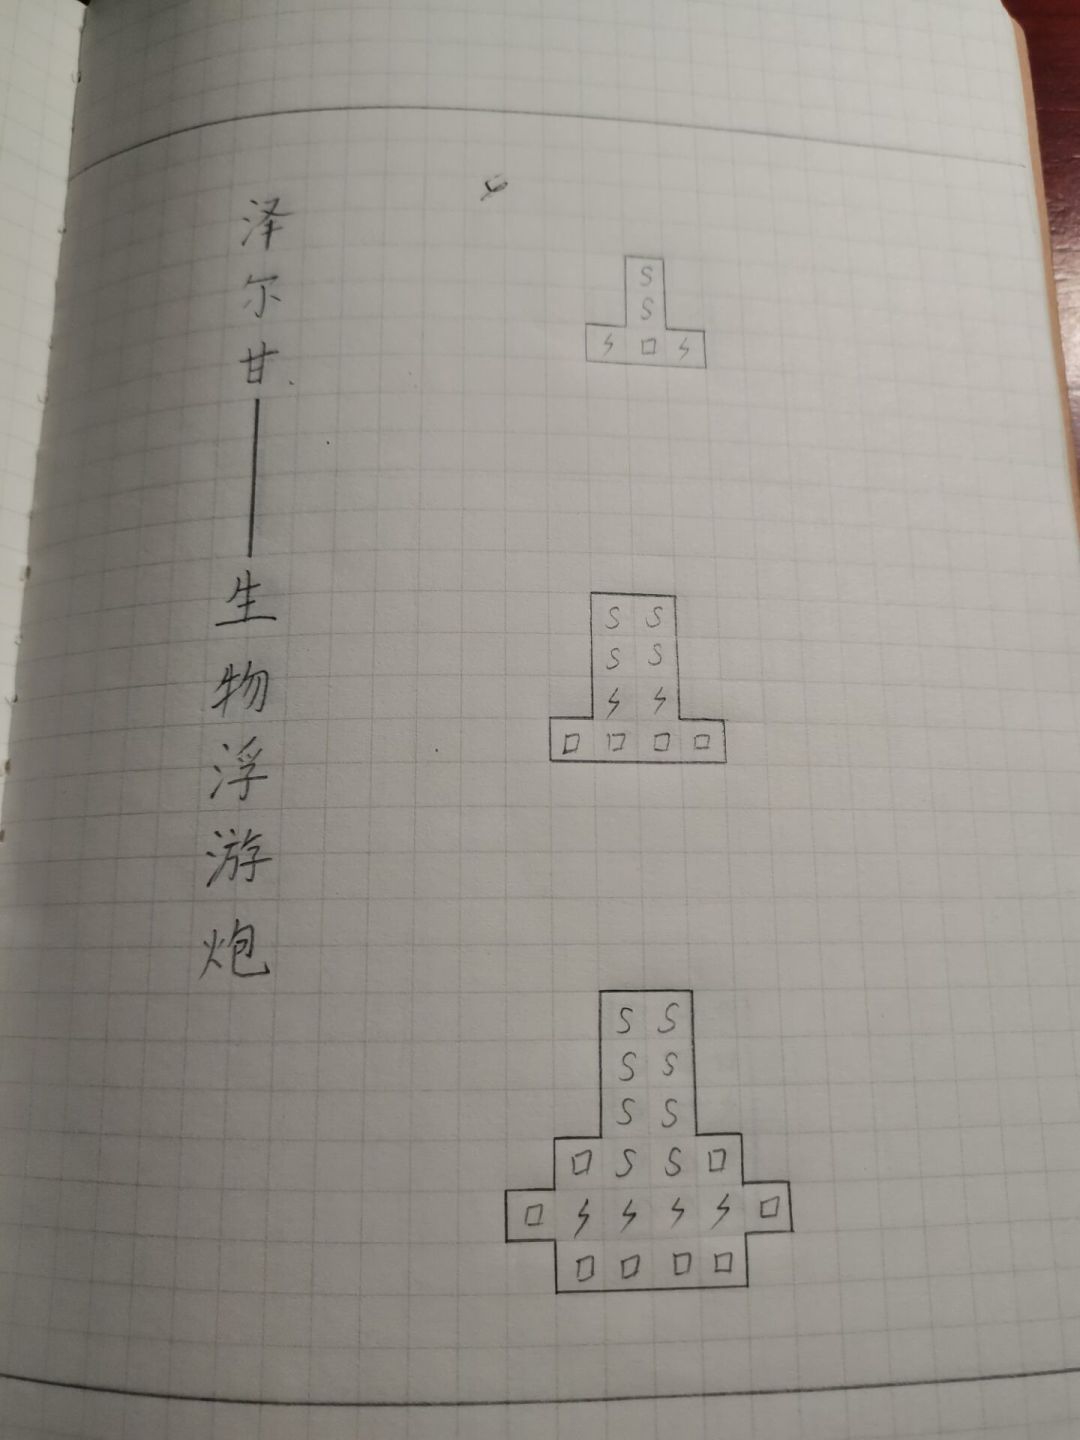 泽尔甘——生物浮游炮
S
S
ϟ □ ϟ
S S
S S
ϟ ϟ
□ □ □ □
S S
S S
S S
□ S S □
□ ϟ ϟ ϟ ϟ □
□ □ □ □